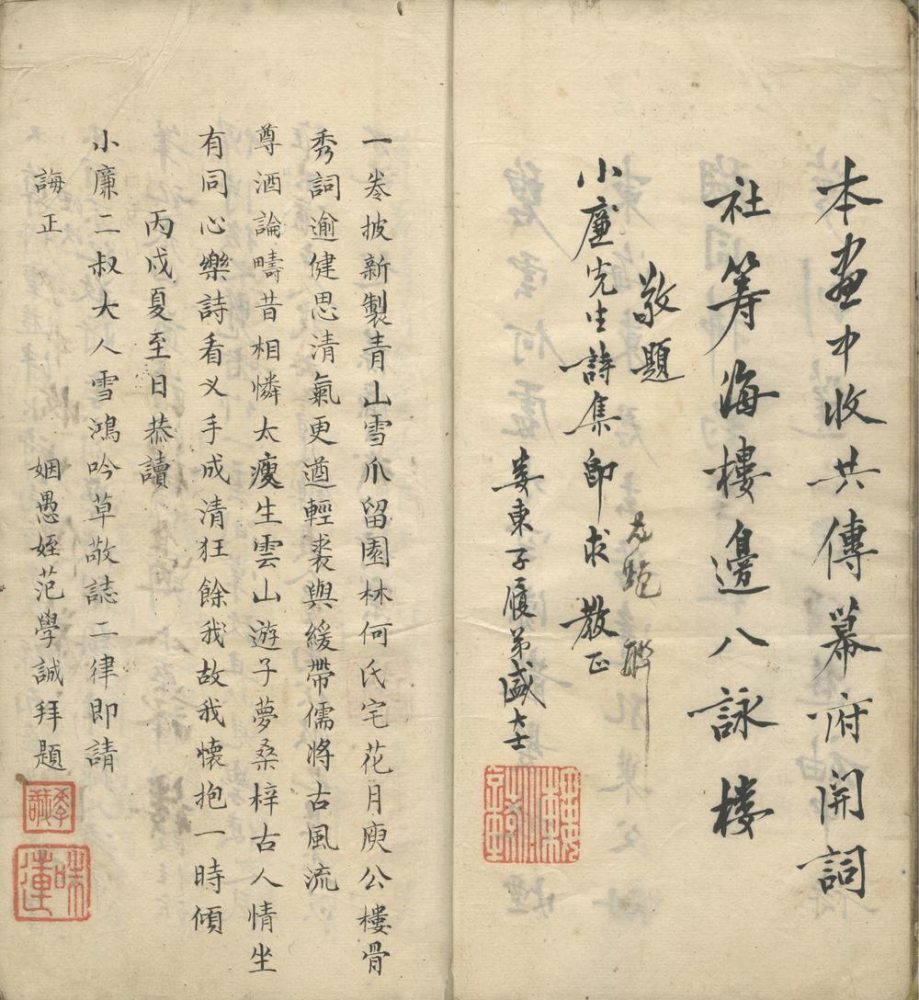 本畫中收共傳幕府開詞
社籌海樓邊八詠樓
敬題
小廉先生詩集即求 教正
婁東子履弟盛大士
一卷披新製青山雪爪留園林何氏宅花月庾公樓骨
秀詞逾健思清氣更遒輕裘與緩帶儒將古風流
尊酒論疇昔相憐太瘦生雲山遊子夢桑梓古人情坐
有同心樂詩看义手成清狂餘我故我懷抱一時傾
丙戌夏至日恭讀
小廉二叔大人雪鴻吟草敬誌二律即請
誨正 姻愚姪范學誠拜題